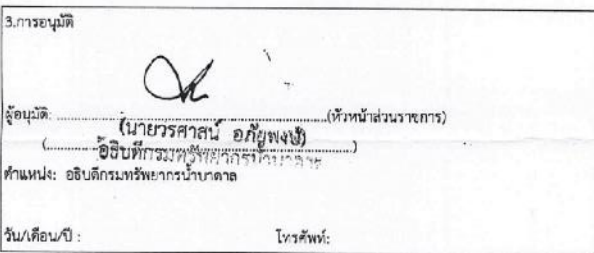 3.การอนุมัติ
ผู้อนุมัติ: ........................................(หัวหน้าส่วนราชการ)
(นายวรศาสน์ อภัยพงษ์)
(........................................)
อธิบดีกรมทรัพยากรน้ำบาดาล
ตำแหน่ง: อธิบดีกรมทรัพยากรน้ำบาดาล
วัน/เดือน/ปี : โทรศัพท์: